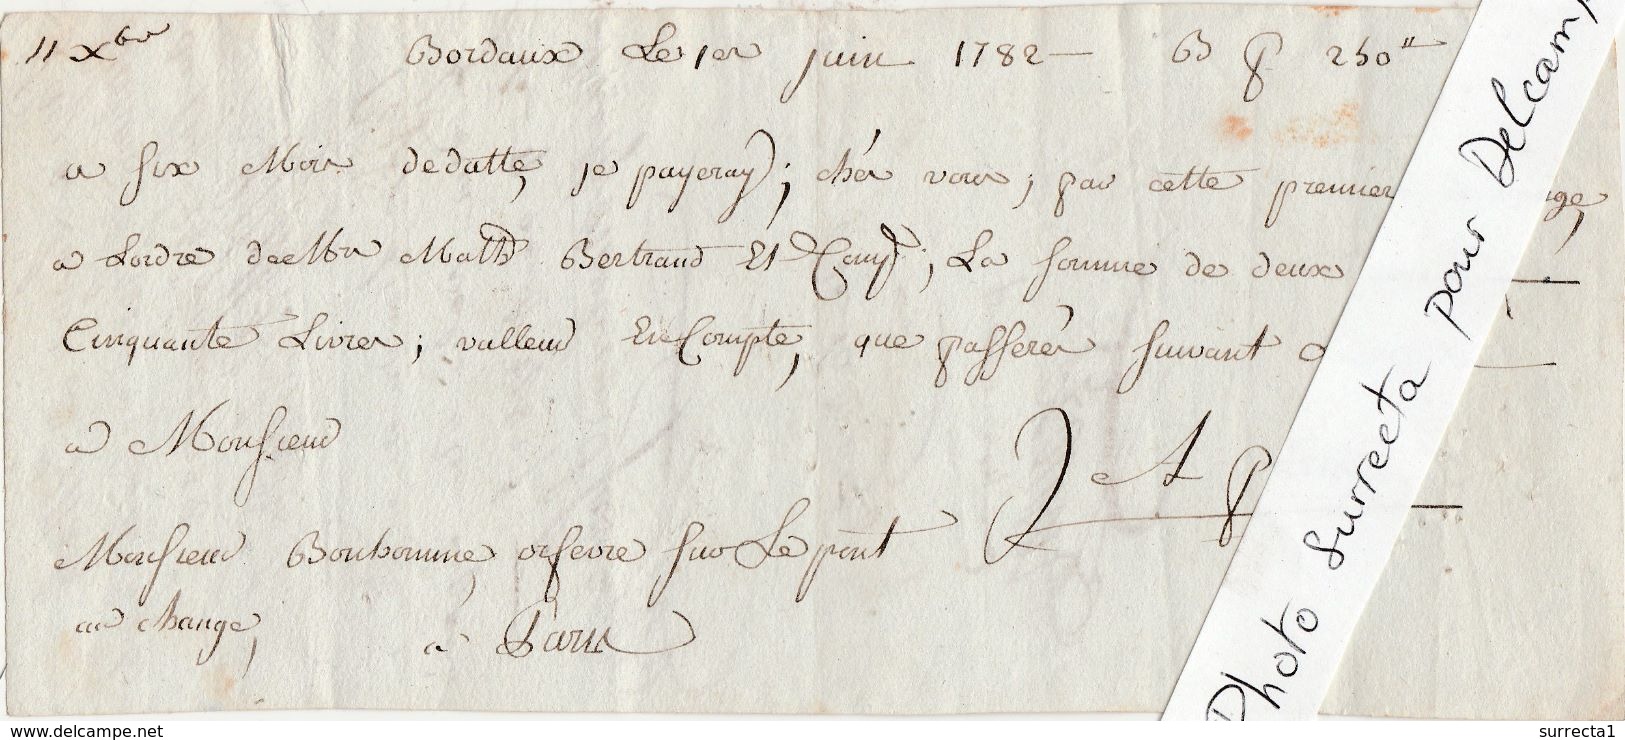 11 Xbre Bordaux Le 1er juin 1782 — B P 250"
a six Mois dedatte, je payeray; chés vous; par cette premier ge,
a Lordre de Mr Math Bertrand Et Comp; La somme de deux
Cinquante Livres; valleur En Compte, que passerés suivant
a Monsieur
Monsieur Bonhomme, orfevre sur Le pont
au change, a Paris
Photo Surrecta pour Delcamp
www.delcampe.net
surrecta1